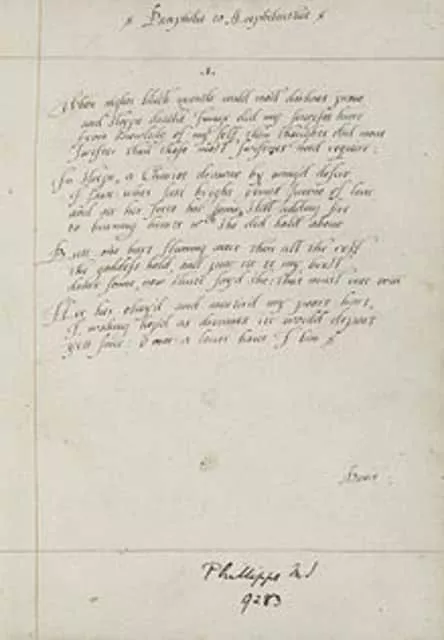 Pamphilia to Amphilanthus
1.
When nights black mantle could most darknes prove,
and sleepe deaths Image did my senceses hiere
from knowledg of my self, then thoughts did move
swifter then those most swiftnes need require:
In sleepe, a Chariot drawne by wing'd desire
I sawe: wher sate bright Venus Queene of love,
and att her feete her sonne, still adding fire
to burning hearts wch she did hold above,
Butt one hart flaming more then all the rest
the goddess held, and putt itt to my brest,
deare sonne, now shutt sayd she: thus must wee winn;
Hee her obay'd, and martir'd my poore hart,
I, waking hop'd as dreames itt would depart
yett since: O mee: a lover have I binn
Phillipps MS
9283